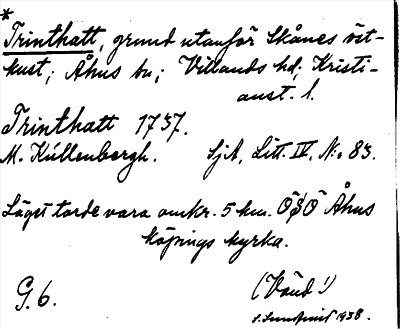 *
Trinthatt, grund utanför Skånes öst-
kust; Åhus sn; Villands hd; Kristi-
anst. l.
Trinthatt 1737.
M. Kúllenbergh. SjA, Litt. IV, N:o 83.
Läget torde vara omkr. 5 km. OSO Åhus
köpings kyrka.
G. 6. (Vänd!)
S. Lundqvist 1938.